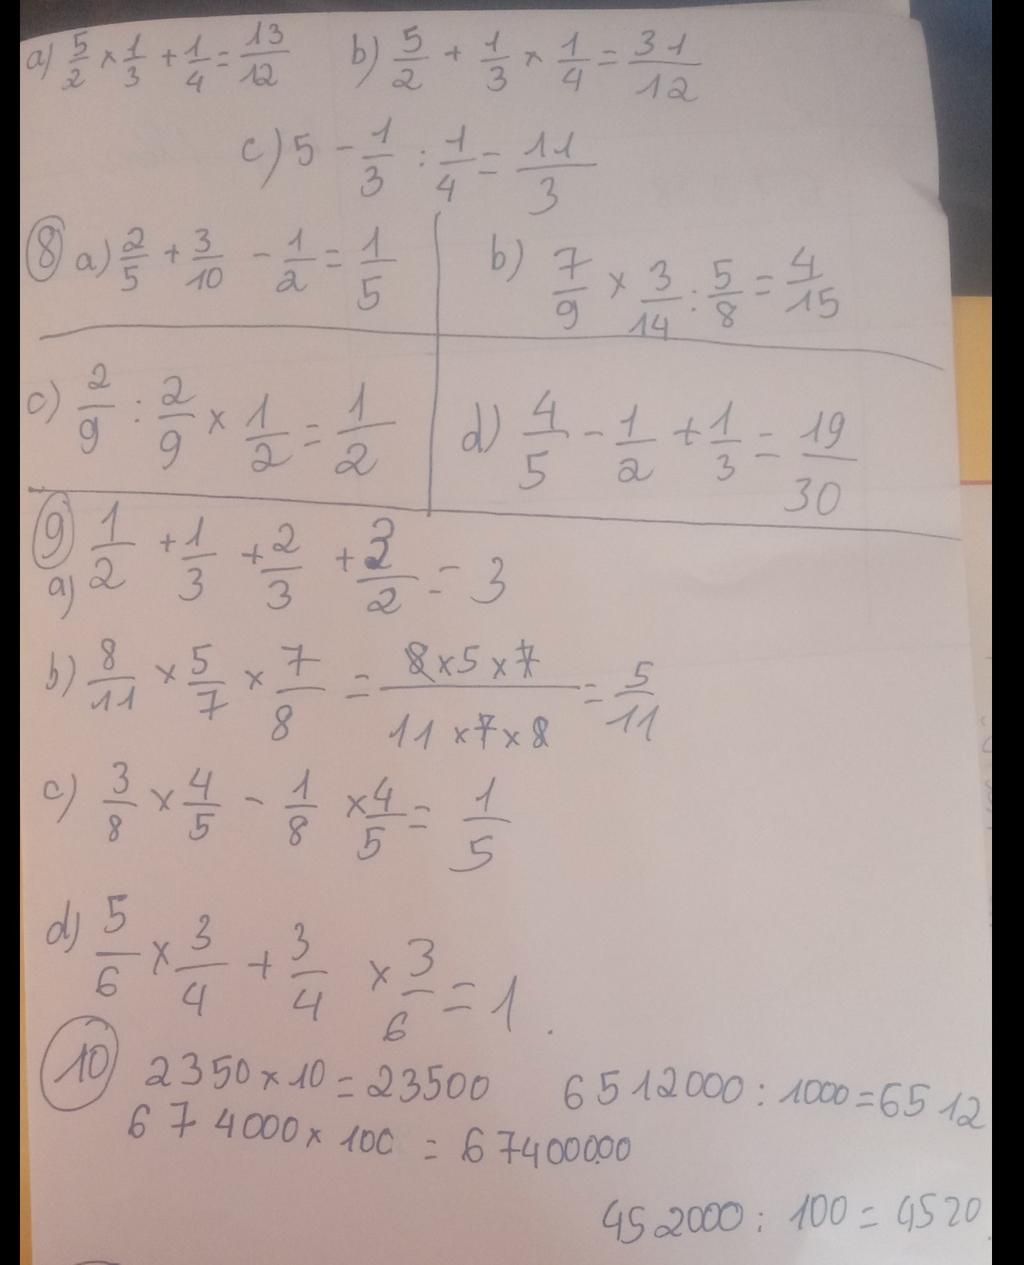 a) 5/2 × 1/3 + 1/4 = 13/12 b) 5/2 + 1/3 × 1/4 = 31/12
c) 5 - 1/3 : 1/4 = 11/3
8 a) 2/5 + 3/10 - 1/2 = 1/5 b) 7/9 × 3/14 : 5/8 = 4/15
c) 2/9 : 2/9 × 1/2 = 1/2 d) 4/5 - 1/2 + 1/3 = 19/30
9 a) 1/2 + 1/3 + 2/3 + 3/2 = 3
b) 8/11 × 5/7 × 7/8 = 8×5×7/11×7×8 = 5/11
c) 3/8 × 4/5 - 1/8 × 4/5 = 1/5
d) 5/6 × 3/4 + 3/4 × 3/6 = 1.
10 2350 × 10 = 23500 6512000 : 1000 = 6512
674000 × 100 = 67400000
452000 : 100 = 4520